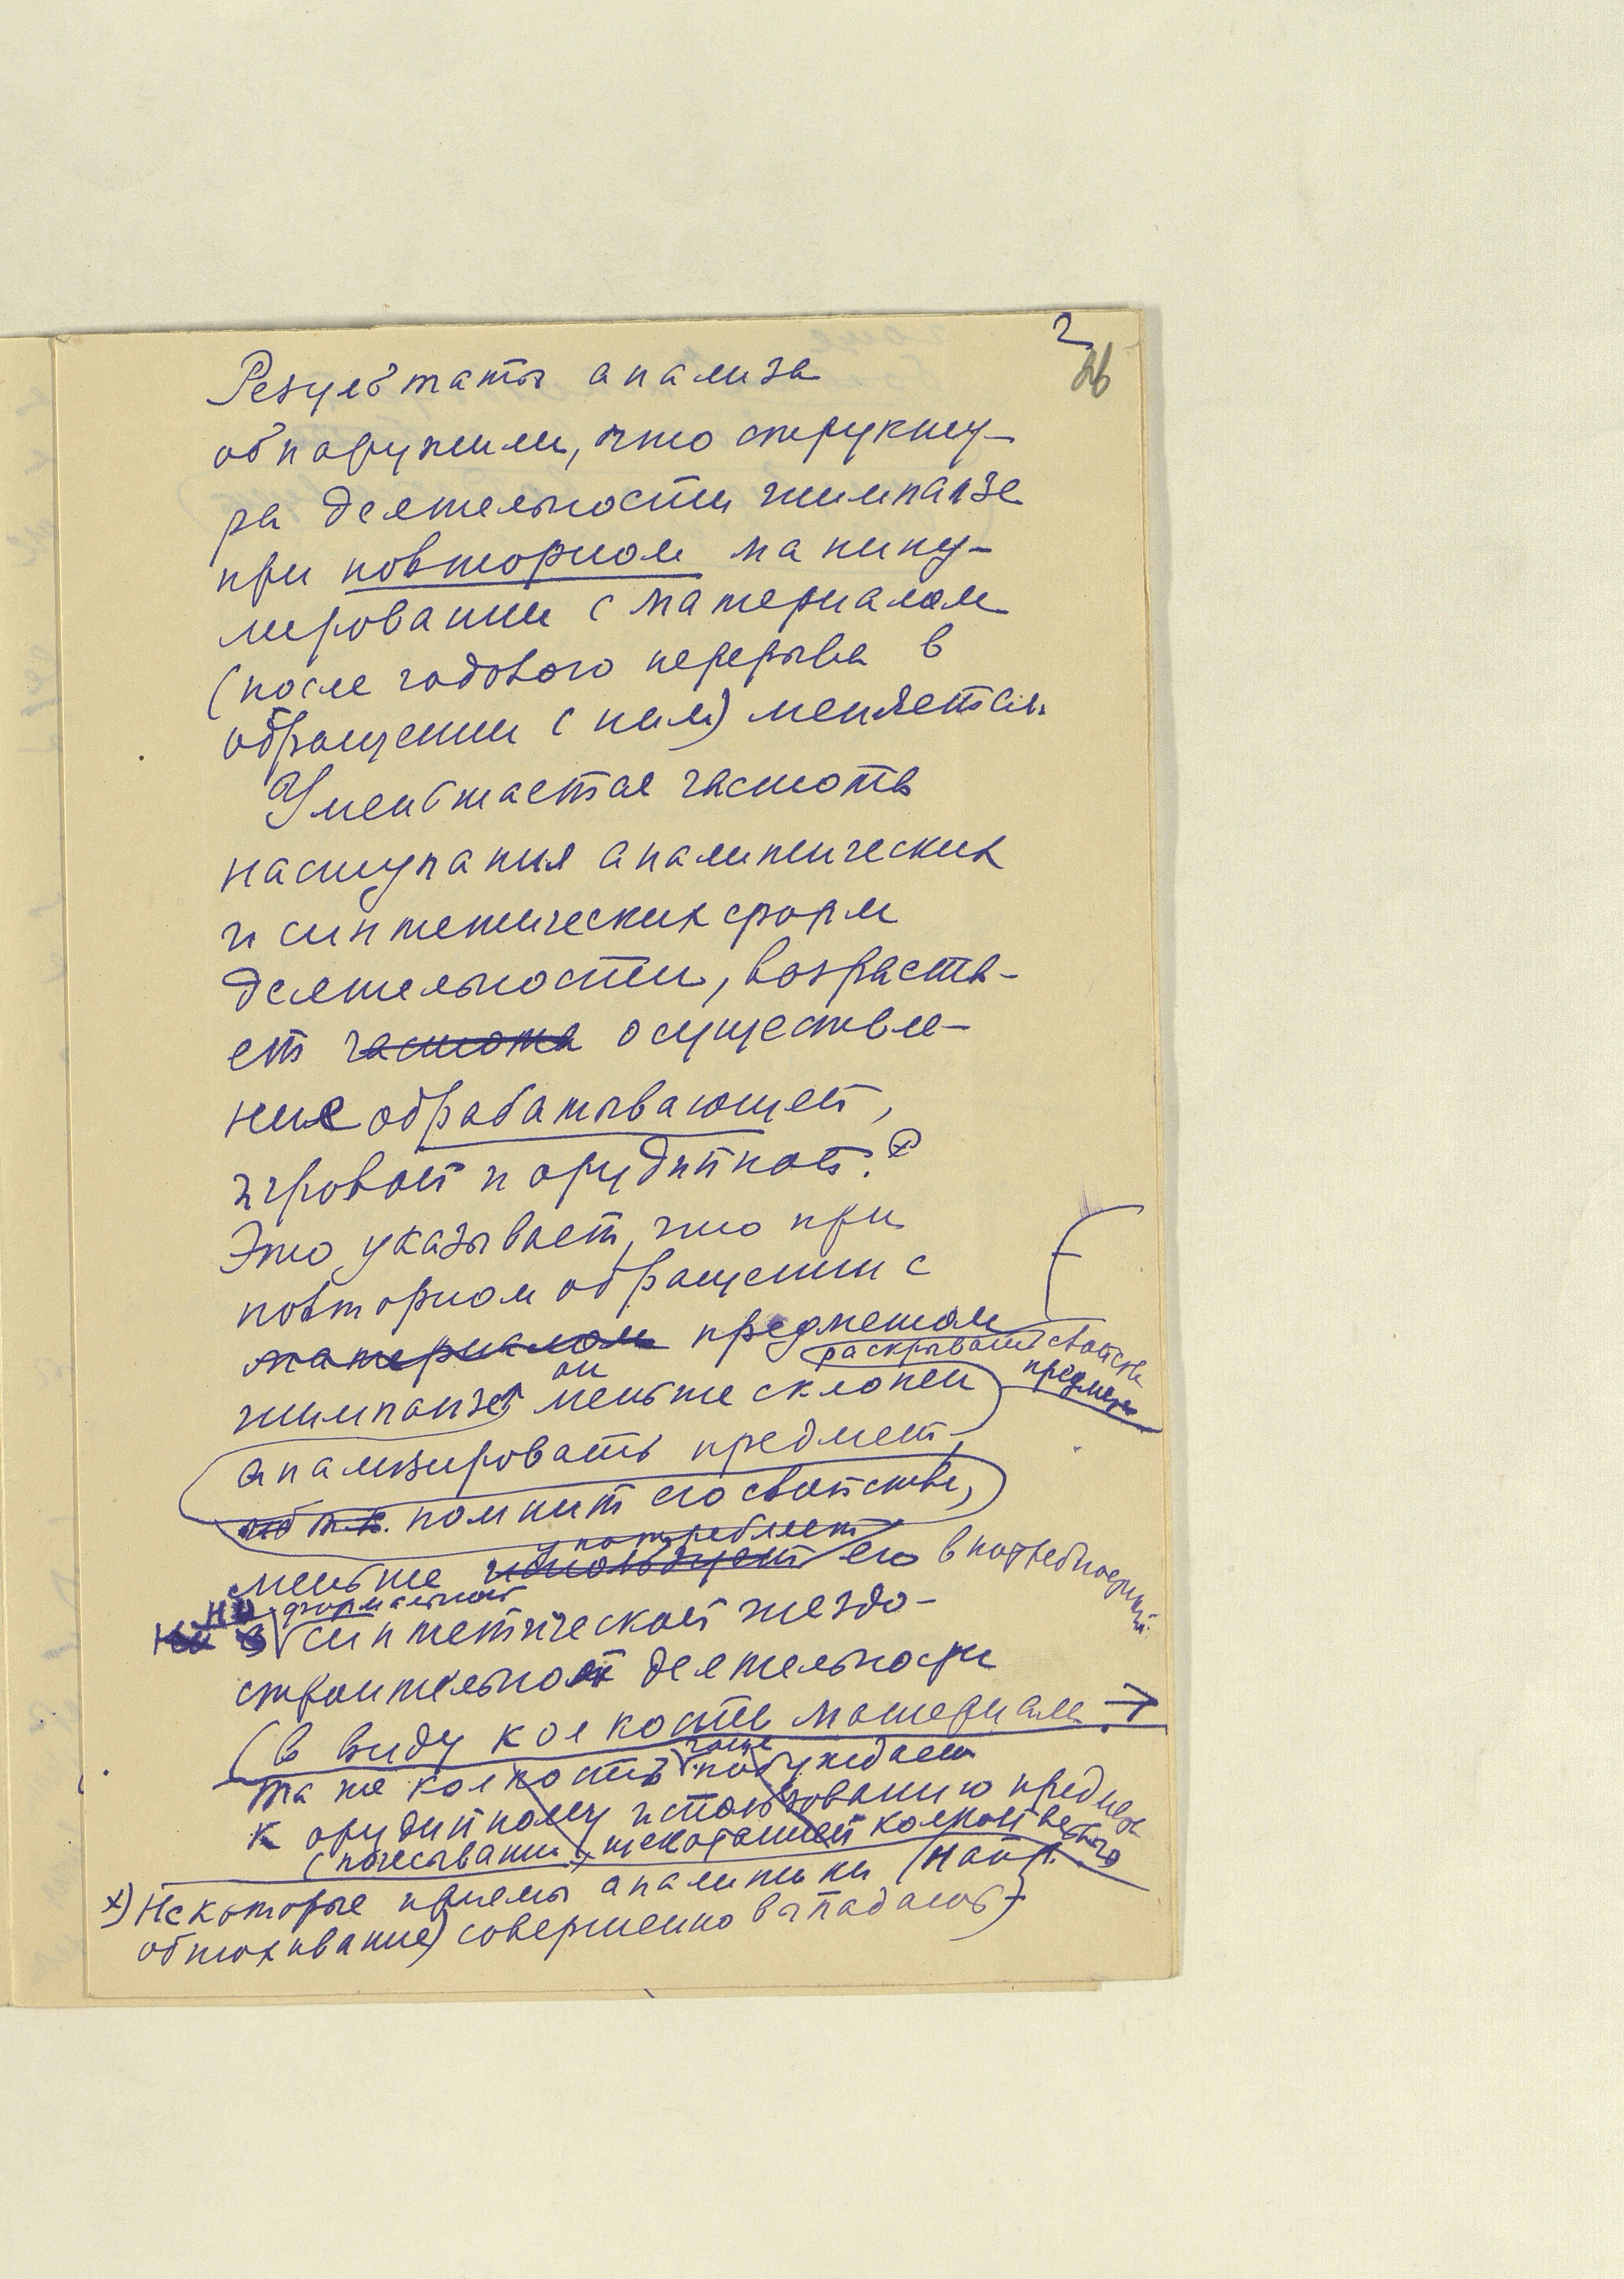 2
26
Результаты анализа
обнаружили, что структу-
ра деятельности шимпанзе
при повторном манипу-
лировании с материалом
(после годового перерыва в
обращении с ним) меняется.
Уменьшается частота
наступания аналитических
и синтетических форм
деятельности, возраста-
ет частота осуществле-
ние обрабатывающей,
игровой и орудийной. x)
Это указывает, что при
повторном обращении с
материалом предметом
раскрывать свойства
предмета
он
шимпанзе меньше склонен
анализировать предмет,
т.к. помнит его свойства,
употребляет
меньше использует его
но формальной
синтетической гнездо-
строительной деятельности
(в виду колкости материала →
чаще
та же колкость побуждает
к орудийному использованию предмета
(почесывании, щекотанией колкой
x) Некоторые приемы аналитики (напр.
обнюхивание) совершенно выпадают)